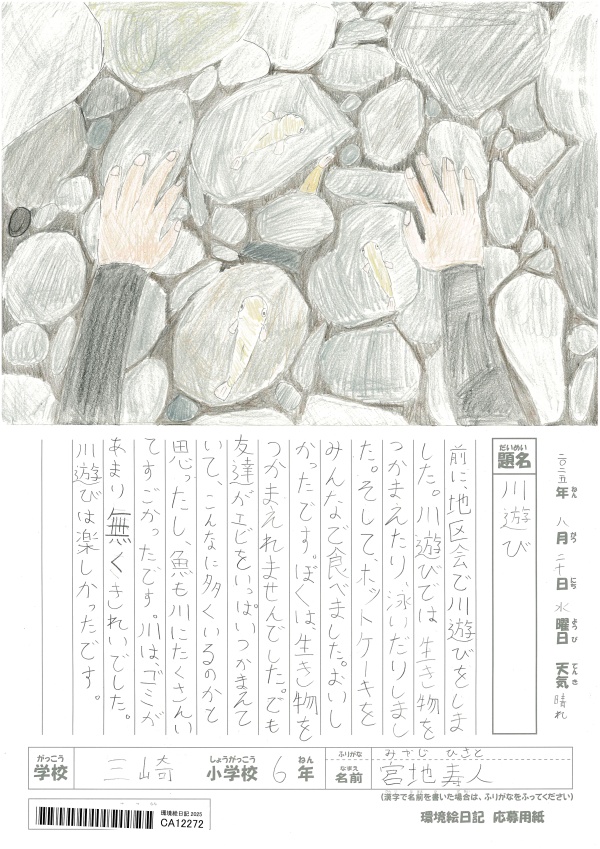 二〇二五年ねん 八月がつ 二十日にち 水曜日ようび 天気てんき 晴れ
題名だいめい 川遊び
前に、地区会で川遊びをしま
した。川遊びでは生き物を
つかまえたり、泳いだりしまし
た。そして、ホットケーキを
みんなで食べました。おいし
かったです。ぼくは、生き物を
つかまえれませんでした。でも
友達がエビをいっぱいつかまえて
いて、こんなに多くいるのかと
思ったし、魚も川にたくさんい
てすごかったです。川は、ゴミが
あまり無くきれいでした。
川遊びは楽しかったです。
がっこう 学校 三崎 しょうがっこう 小学校 6 ねん 年
ふりがな みやじ ひさと
なまえ 名前 宮地寿人
(漢字で名前を書いた場合は、ふりがなをふってください)
環境絵日記 応募用紙
環境絵日記 2025
CA12272